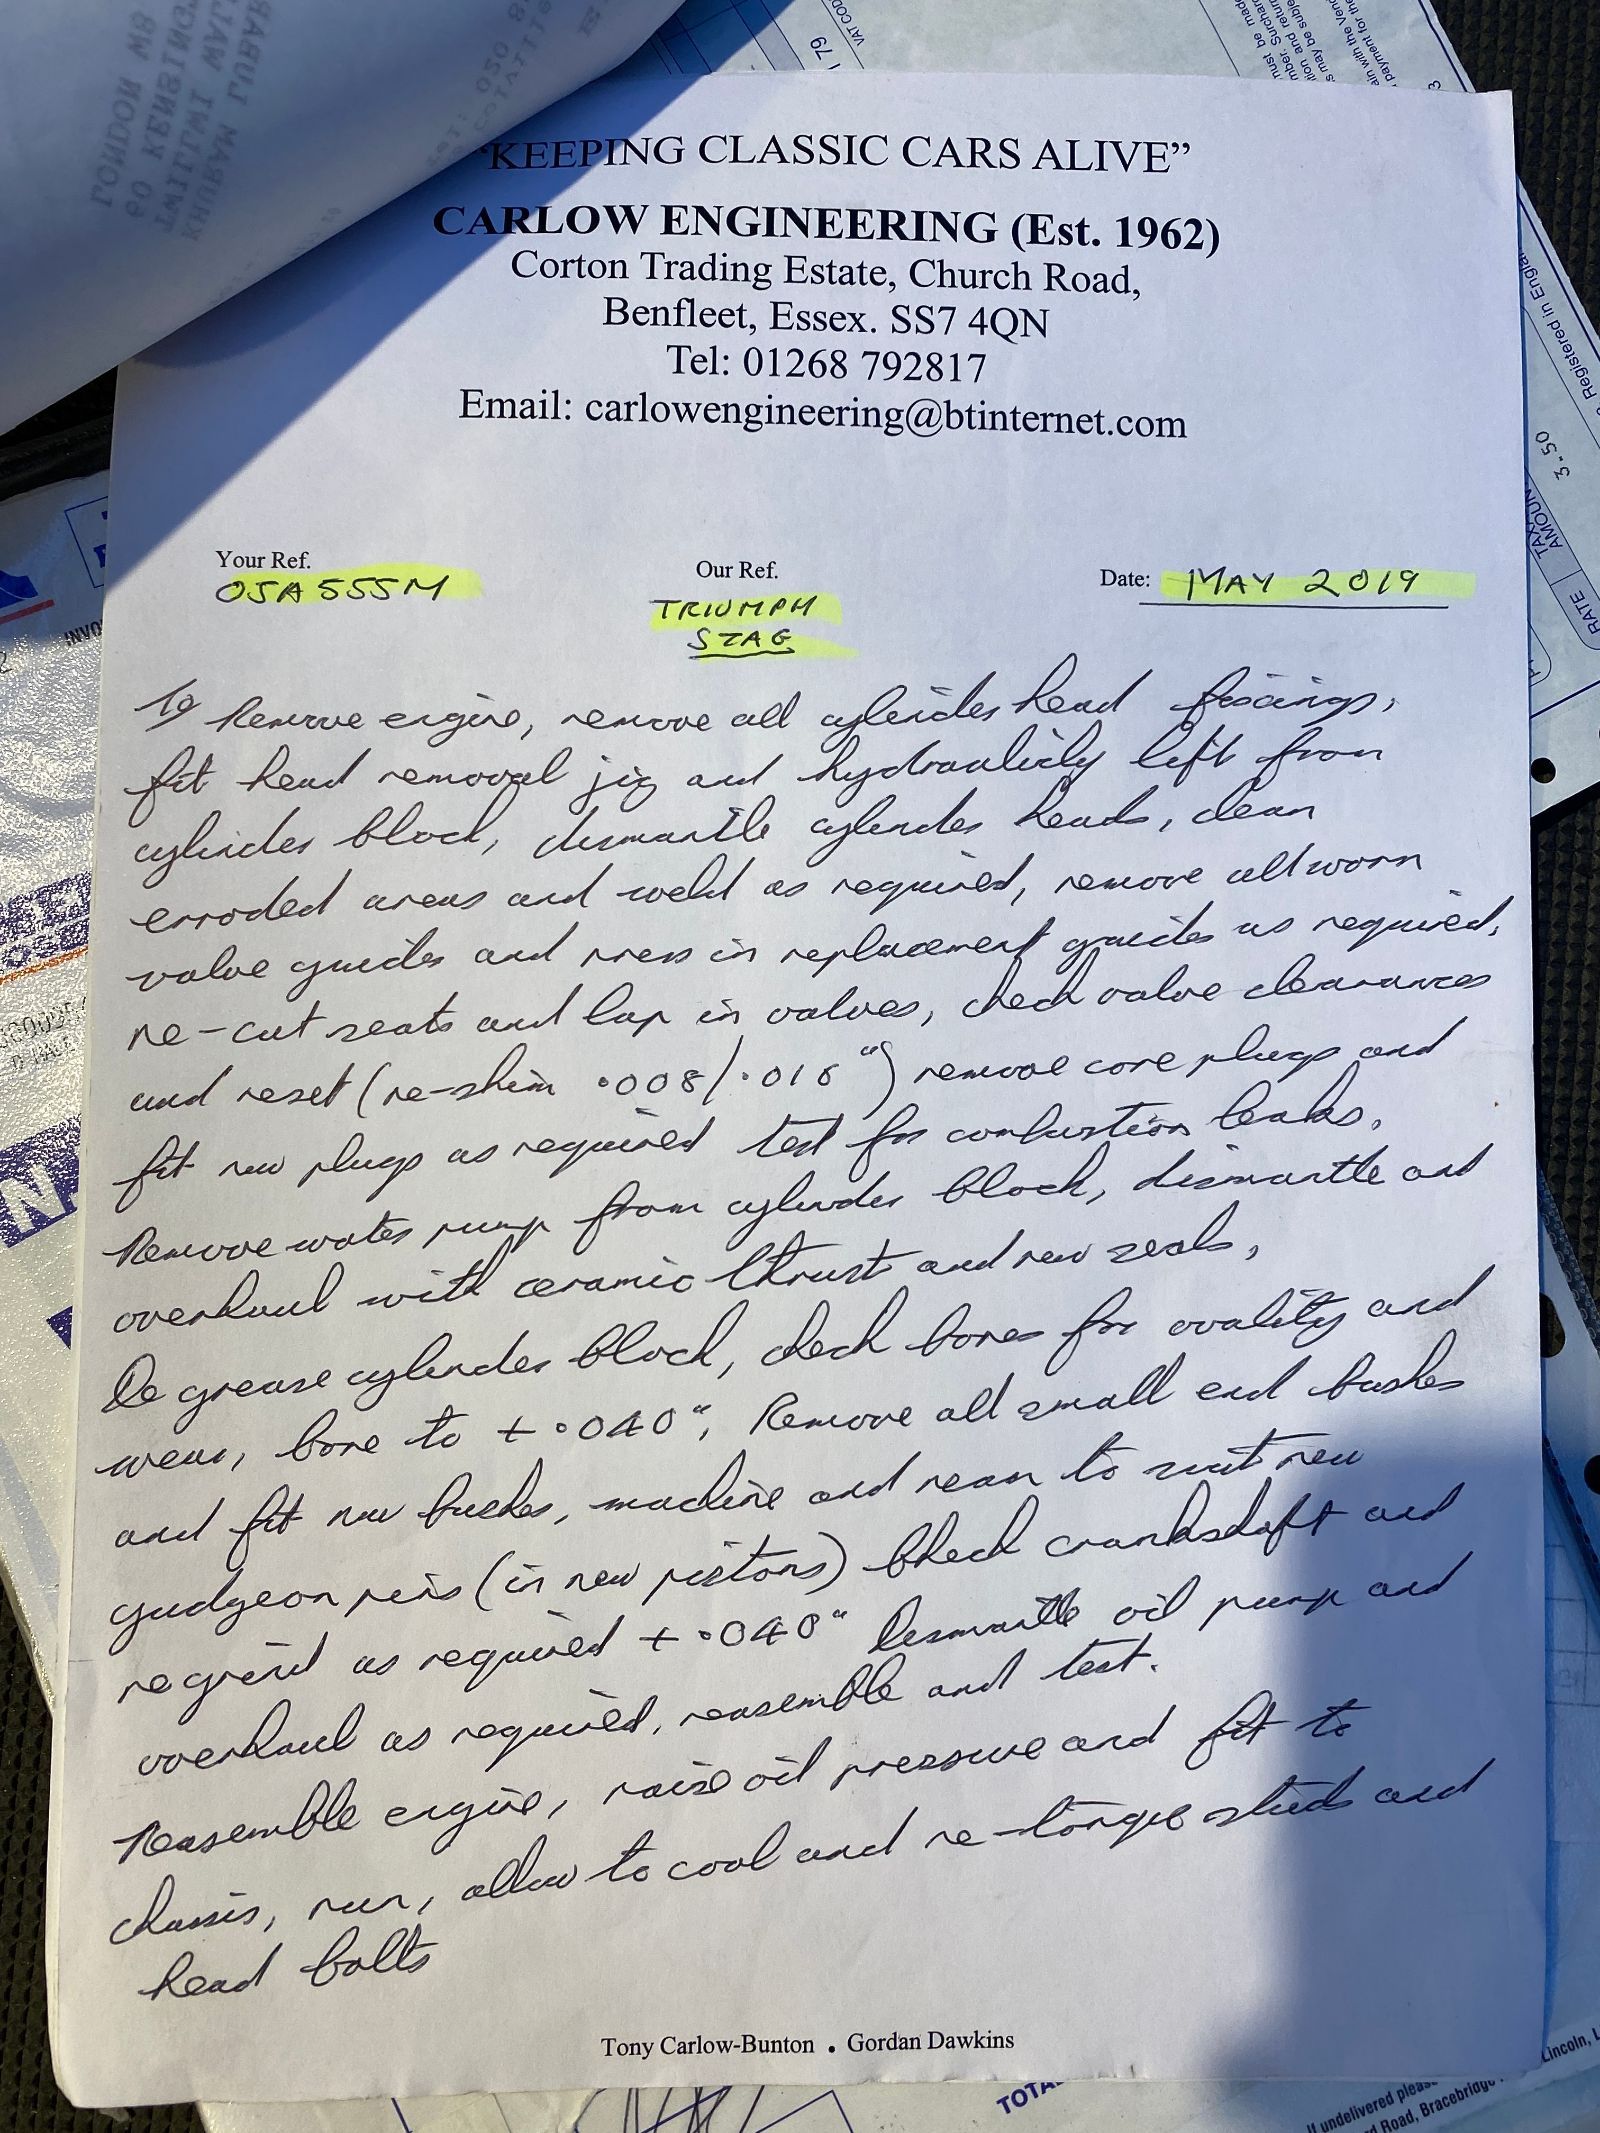 "KEEPING CLASSIC CARS ALIVE"
CARLOW ENGINEERING (Est. 1962)
Corton Trading Estate, Church Road,
Benfleet, Essex. SS7 4QN
Tel: 01268 792817
Email: carlowengineering@btinternet.com
Your Ref.
OJA 555M
Our Ref.
TRIUMPH
STAG
Date: MAY 2019
To Remove engine, remove all cylinder head fixings,
fit head removal jig and hydraulicly lift from
cylinder block, dismantle cylinder heads, clean
erroded areas and weld as required, remove all worn
valve guides and press in replacement guides as required,
re-cut seats and lap in valves, check valve clearances
and reset (re-shim .008/.016") remove core plugs and
fit new plugs as required test for combustion leaks.
Remove water pump from cylinder block, dismantle and
overhaul with ceramic thrust and new seals,
De grease cylinder block, check bores for ovality and
wear, bore to +.040", Remove all small end bushes
and fit new bushes, machine and ream to suit new
gudgeon pins (in new pistons) Check crankshaft and
regrind as required +.040" Dismantle oil pump and
overhaul as required, reasemble and test.
Reasemble engine, raise oil pressure and fit to
chassis, run, allow to cool and re-torque studs and
head bolts
Tony Carlow-Bunton • Gordan Dawkins
LONDON W8
VAT COD
179
3.50
AMOUN
RATE
Registered in Englan
INVO
TOTA
If undelivered pleas
d Road, Bracebridge
Lincoln, L